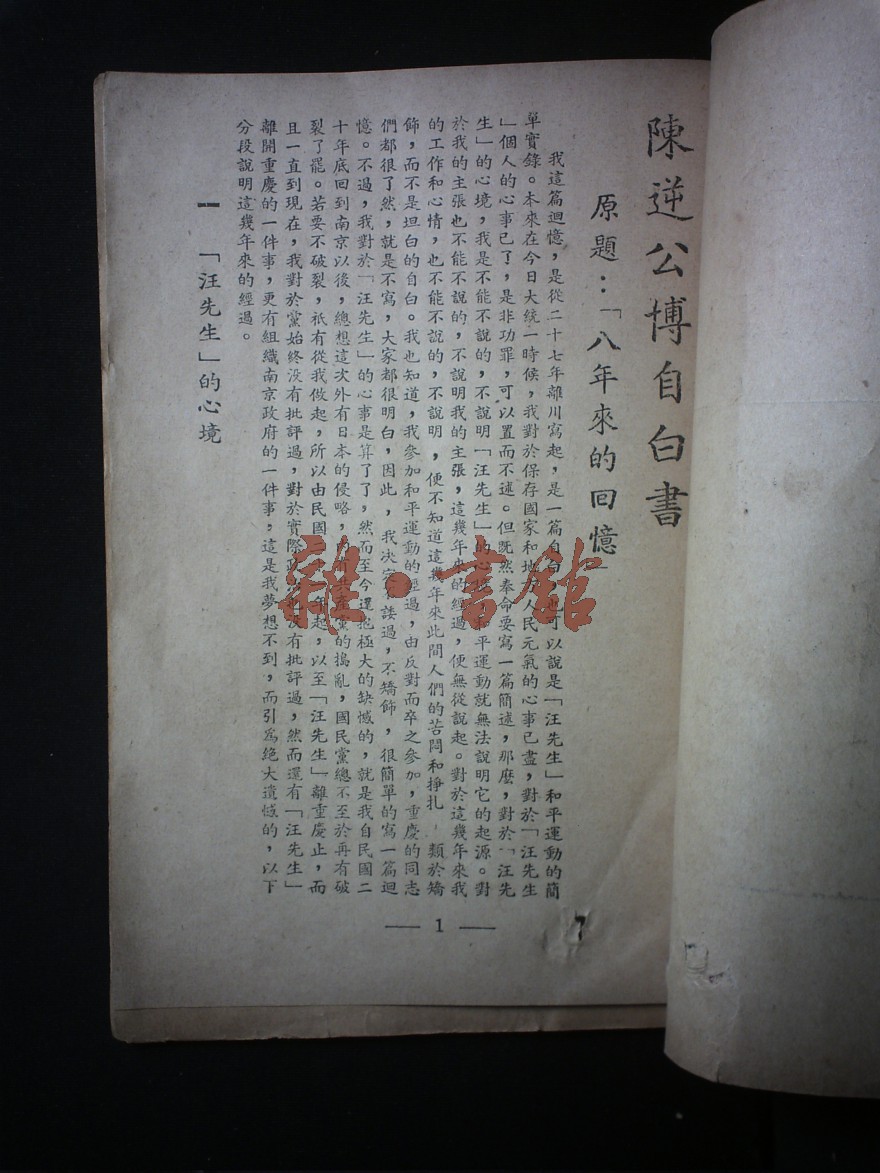 陳逆公博自白書
原題：「八年來的回憶」
我這篇迴憶，是從二十七年離川寫起，是一篇自白，也可以說是「汪先生」和平運動的簡
單實錄。本來在今日大統一時候，我對於保存國家和地方人民元氣的心事已盡，對於「汪先生
」個人的心事已了，是非功罪，可以置而不述。但既然奉命要寫一篇簡述，那麼，對於「汪先
生」的心境，我是不能不說的，不說明「汪先生」的心境，和平運動就無法說明它的起源。對
於我的主張也不能不說的，不說明我的主張，這幾年來的經過，便無從說起。對於這幾年來我
的工作和心情，也不能不說的，不說明，便不知道這幾年來此間人們的苦悶和掙扎 類於矯
飾，而不是坦白的自白。我也知道，我參加和平運動的經過，由反對而卒之參加，重慶的同志
們都很了然，就是不寫，大家都很明白，因此，我決定不諉過，不矯飾，很簡單的寫一篇迴
憶。不過，我對於「汪先生」的心事是算了了，然而至今還抱極大的缺憾的，就是我自民國二
十年底回到南京以後，總想這次外有日本的侵略，內有共產黨的搗亂，國民黨總不至於再有破
裂了罷。若要不破裂，祇有從我做起，所以由民國二 年起，以至「汪先生」離重慶止，而
且一直到現在，我對於黨始終没有批評過，對於實際政 也没有批評過，然而還有「汪先生」
離開重慶的一件事，更有組織南京政府的一件事，這是我夢想不到，而引爲絕大遺憾的，以下
分段說明這幾年來的經過。
一　「汪先生」的心境
— 1 —
雜·書館